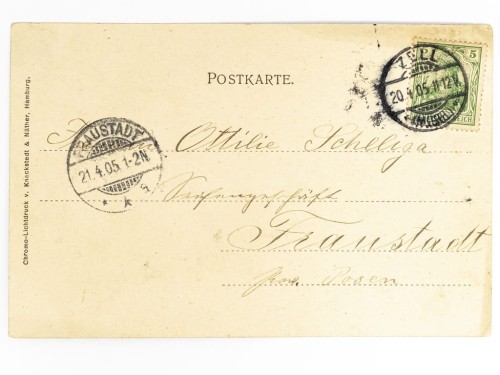 POSTKARTE.
5
ZELL
20.4.05.11-12V.
FRAUSTADT
21.4.05.1-2N.
Ottilie Scheliga
Seifengeschäft
Fraustadt
Posen
Chromo-Lichtdruck v. Knackstedt & Näther, Hamburg.